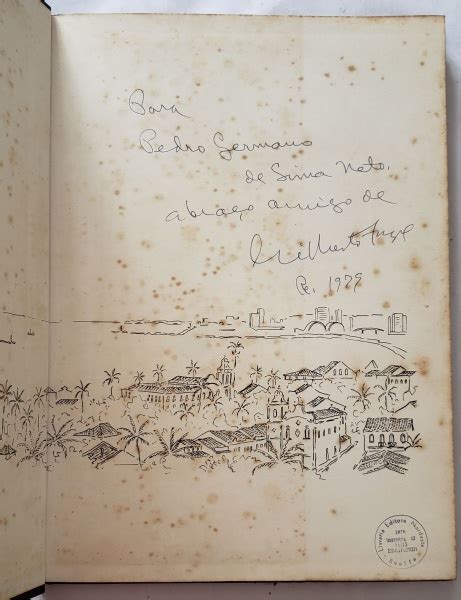 Para
Pedro Germano
de Lima Neto,
abraço amigo de
Gilberto Freyre
Re. 1979
Livraria Editora Nordeste
Recife